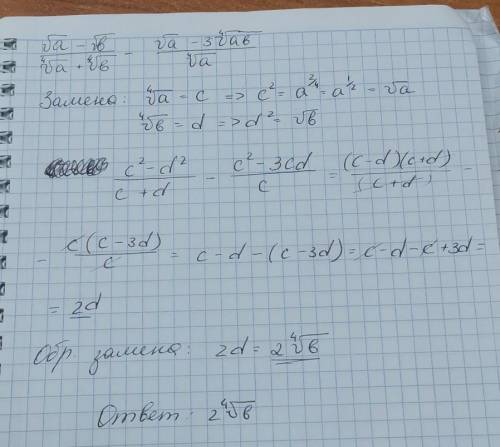 (√a − √в)/(⁴√a + ⁴√в) − (√a − 3⁴√aв)/⁴√a
Замена: ⁴√a = c => c² = a^(2/4) = a^(1/2) = √a
⁴√в = d => d² = √в
(c² − d²)/(c + d) − (c² − 3cd)/c = (c−d)(c+d)/(c+d) −
− c(c − 3d)/c = c − d − (c − 3d) = c − d − c + 3d =
= 2d
Обр замена: 2d = 2⁴√в
Ответ: 2⁴√в